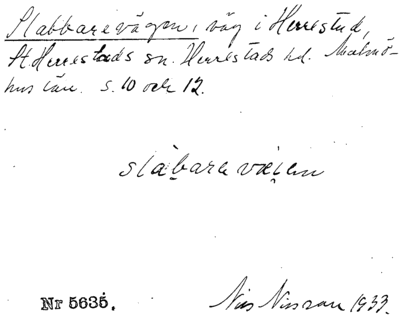 Slabbarevägen, väg i Herrestad,
St. Herrestads sn. Herrestads hd. Malmö-
hus län. s. 10 och 12.
slàbare væien
Nr 5635.
Nils Nilsson 1933.